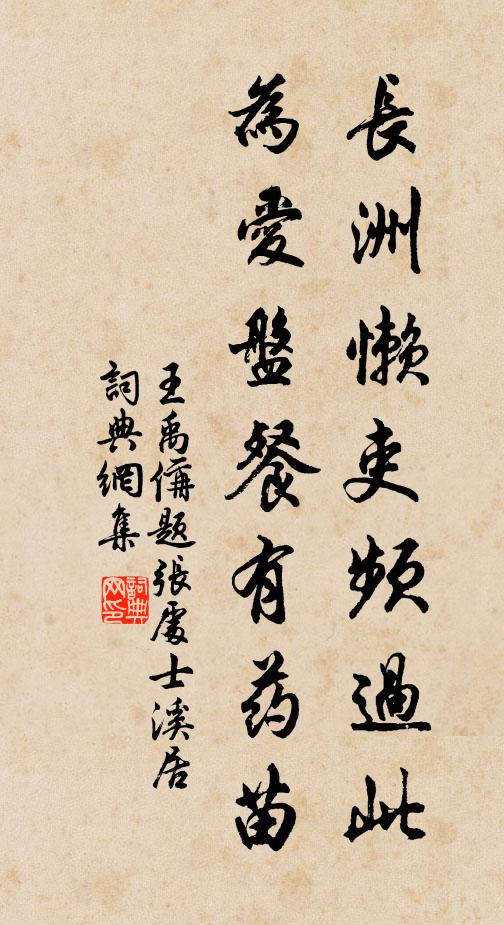 長洲懶吏頻過此
為愛盤餐有药苗
王禹偁題張處士溪居
詞典網集
詞典
网印